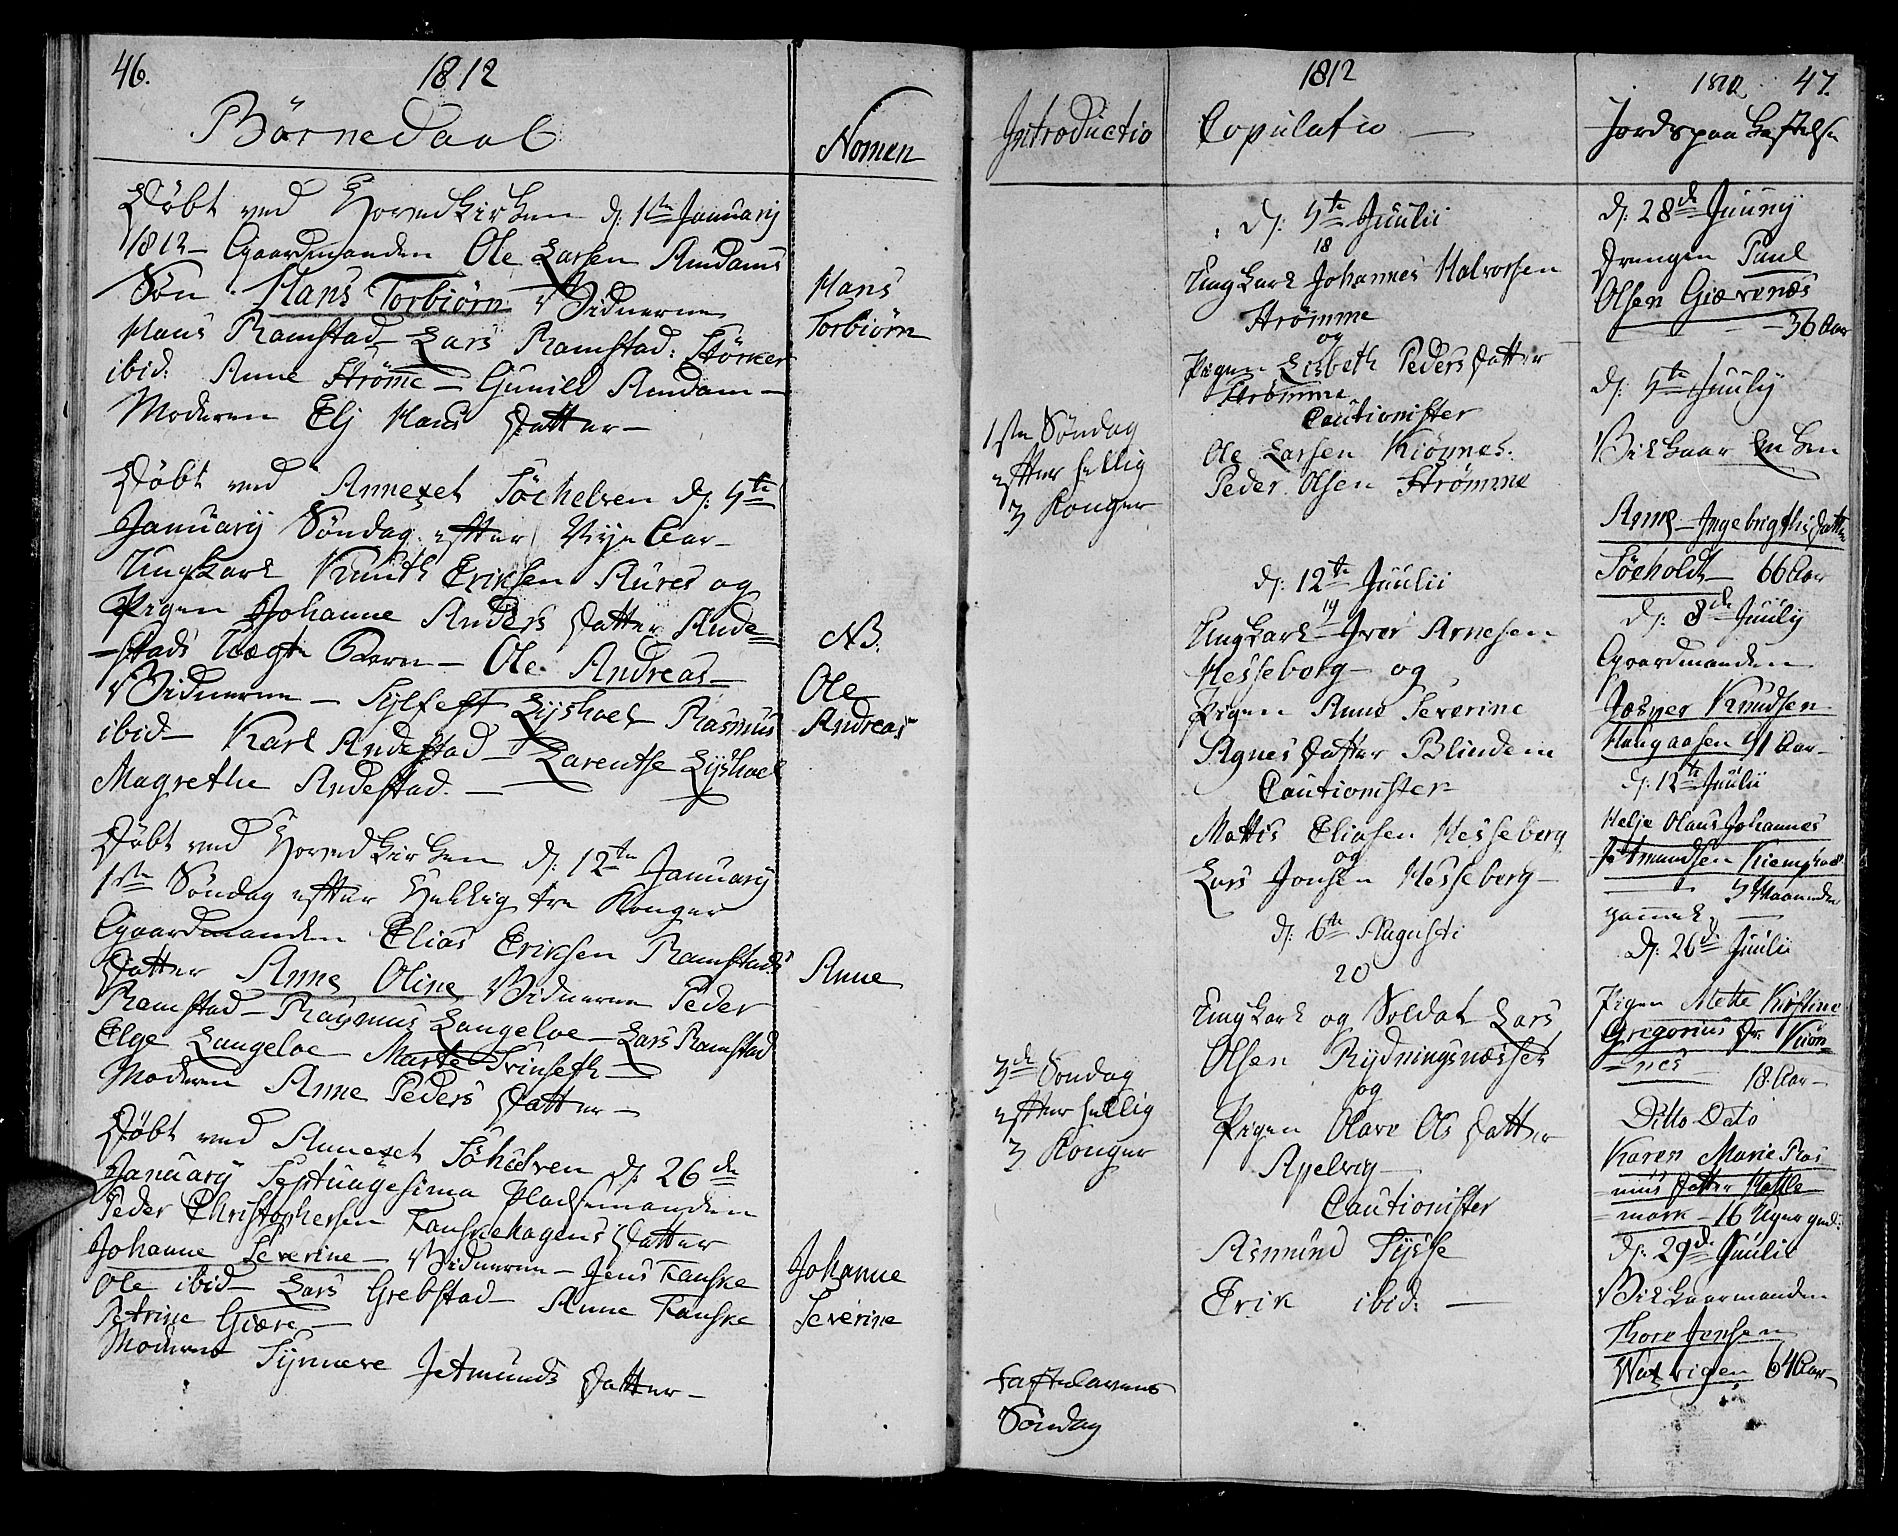 46.
1812
Börnedaab
Nomen
Døbt ved Hovedkirken d: 1ste January
1812 - Gaardmanden Ole Larsen Amdams
Søn Hans Torbiørn Vidnerne
Hans Ramstad - Lars Ramstad: Størker
ibid: Anne Strøme - Gunild Amdam -
Moderen Elj Hans Datter -
Hans
Torbiørn
Døbt ved Annexet Söeholven d: 5te
January Søndag efter Nye Aar -
Ungkarl Knuth Eriksen Aures og
Pigen Johanne Anders Datter Ande=
-stads Uægte Barn - Ole Andreas -
Vidnerne - Sylfest Lyshoel Rasmus
ibid - Karl Andestad - Larentse Lyshoel
Magrethe Andestad. -
NB.
Ole
Andreas
Døbt ved Hovedkirken d: 12te January
1ste Søndag efter Hellig tre Konger
Gaardmanden Elias Eriksen Ramstads
Datter Anne Oline Vidnerne Peder
Ramstad - Rasmus Langeloe - Lars Ramstad
Elge Langeloe - Marte Svinseth -
Moderen Anne Peders Datter -
Anne
Døbt ved Annexet Söholven d: 26de
January Septuagesima Pladsemanden
Peder Christophersen Fauskehagens Datter
Johanne Severine - Vidnerne - Jens Fauske
Ole ibid - Lars Grebstad - Anne Fauske
Petrine Giære -
Moderen Synneve Jetmunds Datter -
Johanne
Severine
Introductio
1ste Søndag
efter hellig
3 Konger
3de Søndag
efter hellig
3 Konger
Fastelavens
Søndag
1812
Copulatio -
d: 5te Juulii
18
Ungkarl Johannes Halvorsen
Strømme
og
Pigen Lisbeth Peders Datter
Strømme
Cautionister
Ole Larsen Kiønnes.
Peder Olsen Strømme
d: 12te Juulii
19
Ungkarl Iver Arnesen
Hesseborg - og
Pigen Anne Severine
Agnes Datter Blindem
Cautionister
Mattis Eliasen Hesseberg
og
Lars Jonsen Hesseberg -
d: 6te Augusti
20
Ungkarl og Soldat Lars
Olsen Rydningsnæsset
og
Pigen Olave Ols Datter
Apelvig
Cautionister
Asmund Tysse
Erik ibid: -
1812 47.
Jordspaakastelse
d: 28de Juuny
Drengen Paul
Olsen Giævenæs
- 36 Aar
d: 5te Juuly
Vilkaar Enken
Anne Ingebrigths Datter
Söeholdt - 66 Aar
d: 8de Juuly
Gaardmanden
Jesper Knudsen
Haugaasen 51 Aar -
d: 12te Juulii
Helje Olaus Johannes
Jetmundsen
3 Maaneder
gammel -
d: 26de Juulii
Pigen Mette Kirstine
Gregorius Dr: Kiøn=
=nes - 18. Aar -
Ditto Dato
Karen Marie Ras
mus Datter Hatle=
=mark - 16 Uger gml:
d: 29de Juulii
Vilkaarmanden
Thore Jensen
64 Aar -